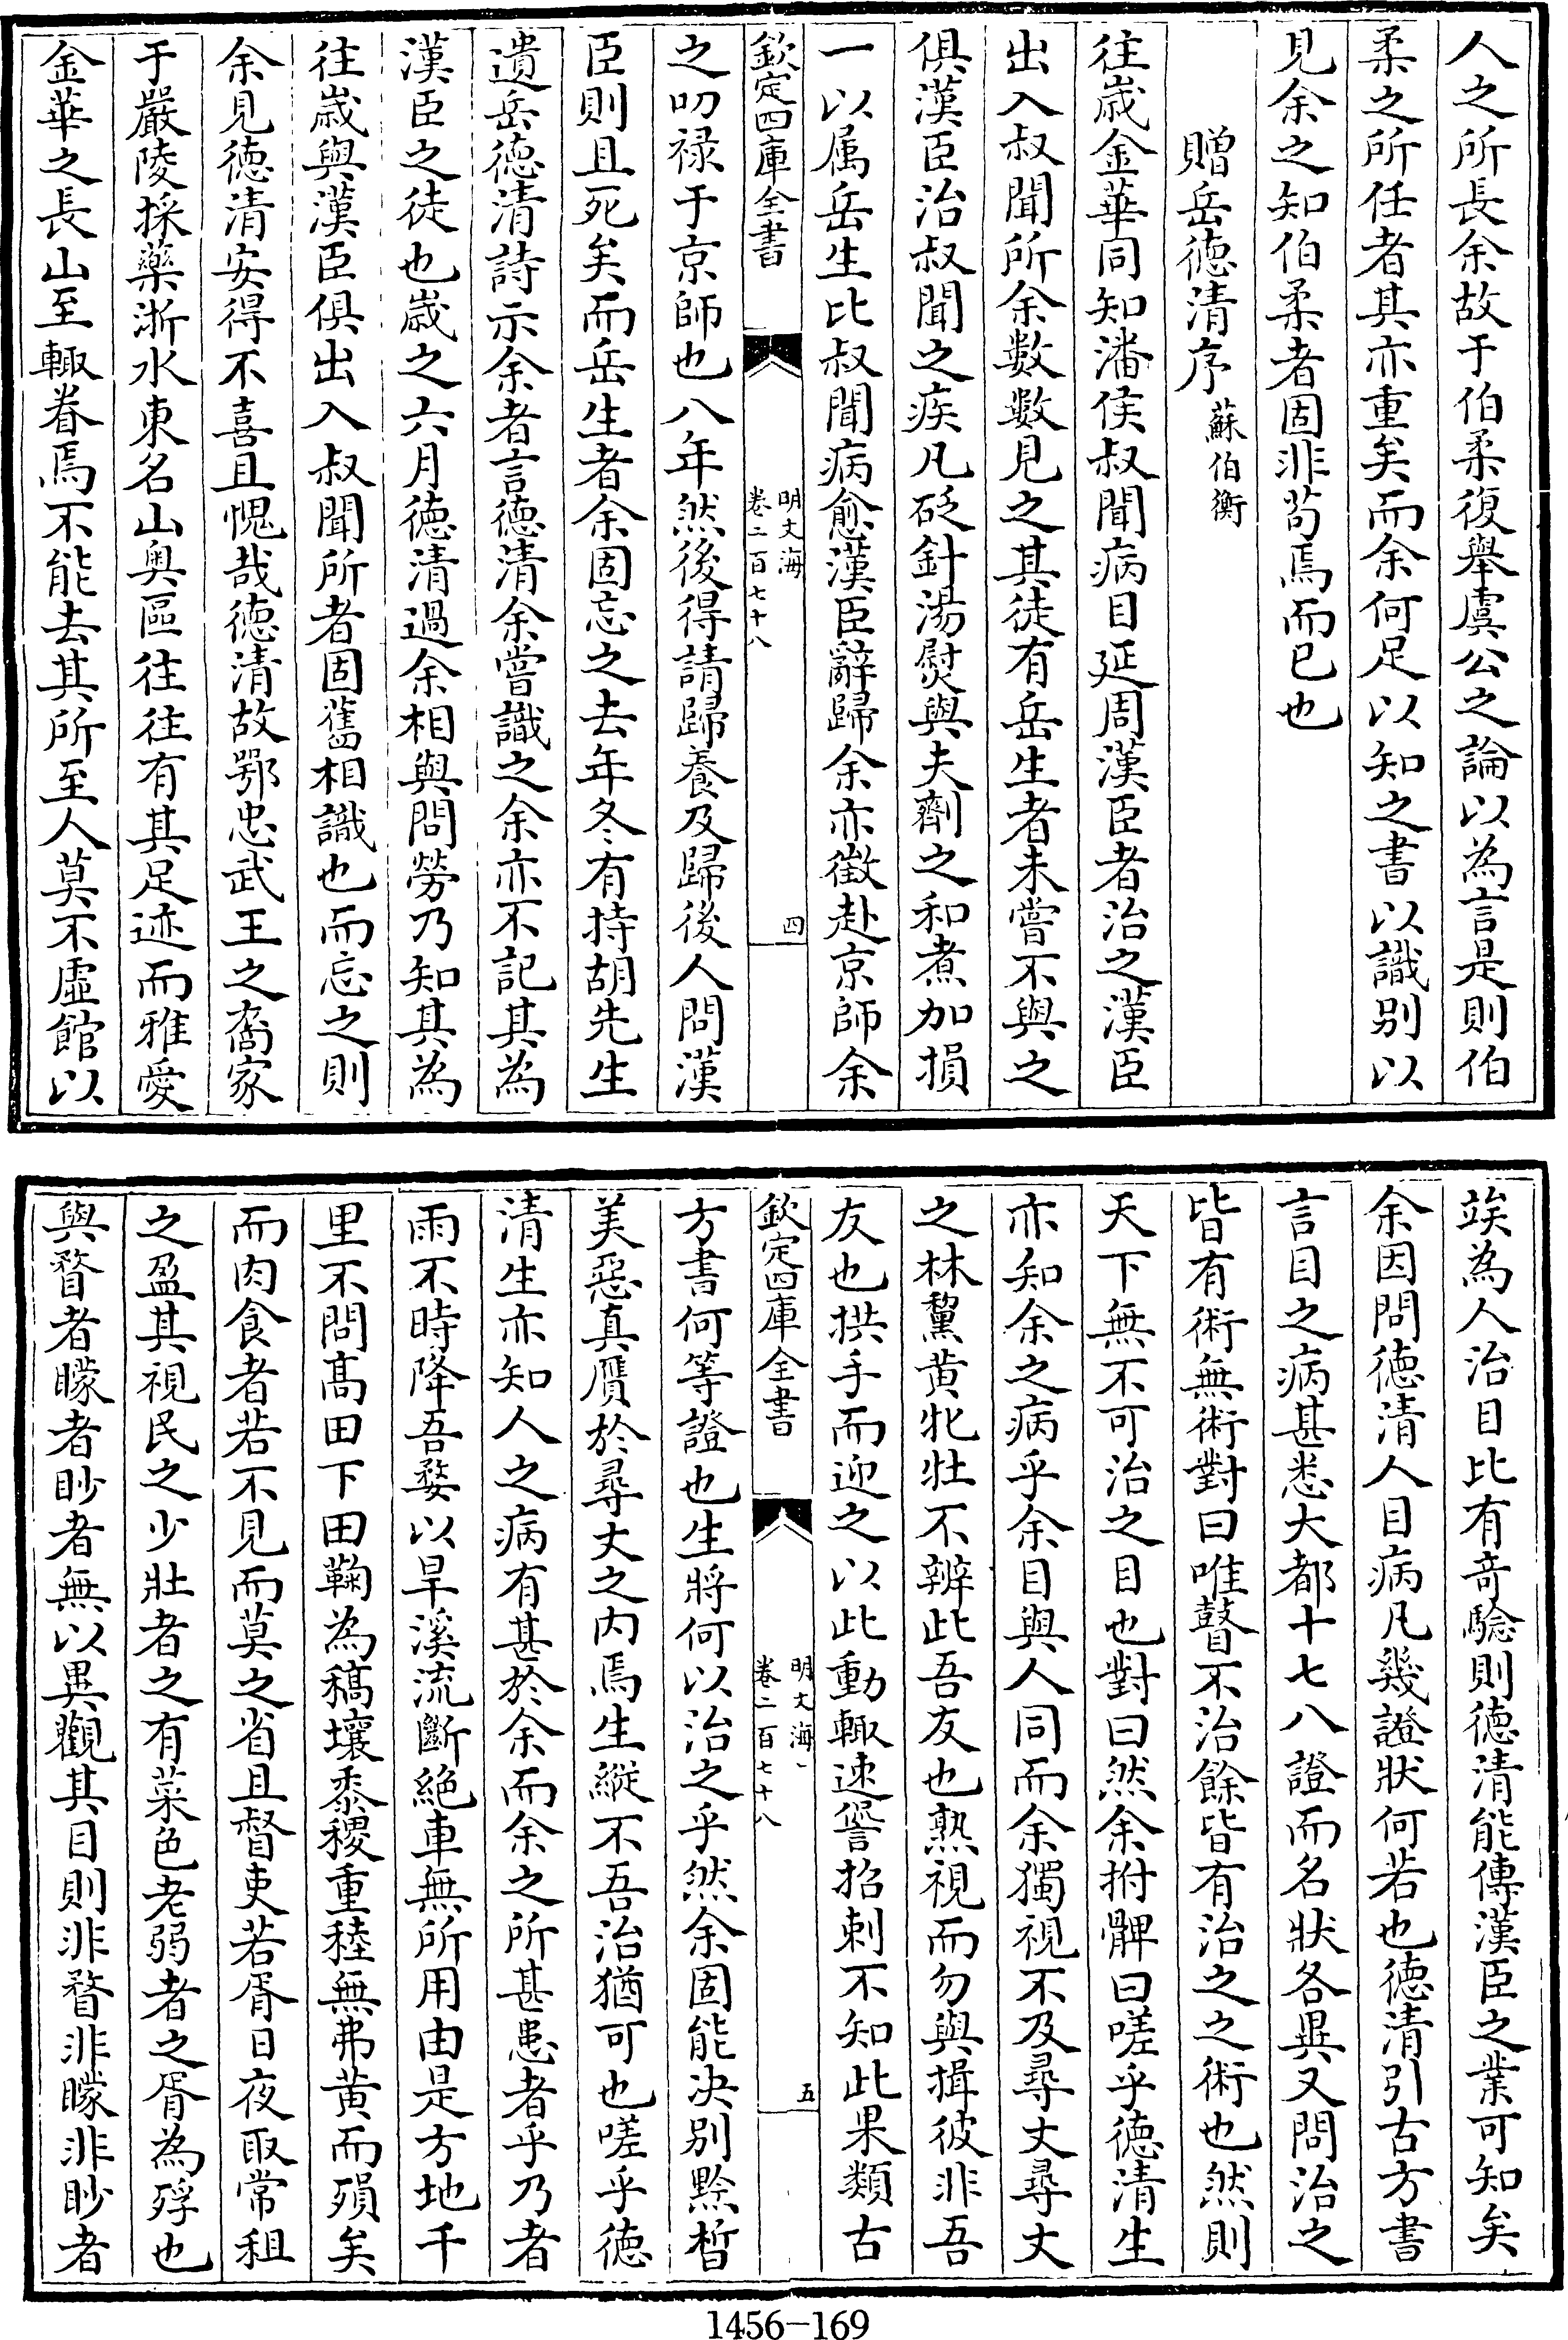 人之所長余故于伯柔復舉虞公之論以為言是則伯
柔之所任者其亦重矣而余何足以知之書以識别以
見余之知伯柔者固非苟焉而已也
贈岳徳清序 蘇伯衡
往歳金華同知潘侯叔聞病目延周漢臣者治之漢臣
出入叔聞所余數數見之其徒有岳生者未嘗不與之
俱漢臣治叔聞之疾凡砭針湯熨與夫劑之和煮加損
一以属岳生比叔聞病愈漢臣辭歸余亦徴赴京師余
欽定四庫全書 明文海 卷二百七十八 四
之叨禄于京師也八年然後得請歸養及歸後人問漢
臣則且死矣而岳生者余固忘之去年冬有持胡先生
遺岳徳清詩示余者言徳清余嘗識之余亦不記其為
漢臣之徒也嵗之六月徳清過余相與問勞乃知其為
往嵗與漢臣俱出入叔聞所者固舊相識也而忘之則
余見徳清安得不喜且愧哉徳清故鄂忠武王之裔家
于嚴陵採藥浙水東名山奥區往往有其足迹而雅愛
金華之長山至輙眷焉不能去其所至人莫不虚館以
竢為人治目比有竒騐則徳清能傳漢臣之業可知矣
余因問徳清人目病凡幾證狀何若也徳清引古方書
言目之病甚悉大都十七八證而名狀各異又問治之
皆有術無術對曰唯瞽不治餘皆有治之之術也然則
天下無不可治之目也對曰然余拊髀曰嗟乎徳清生
亦知余之病乎余目與人同而余獨視不及尋丈尋丈
之林驪黄牝牡不辨此吾友也熟視而勿與揖彼非吾
友也拱手而迎之以此動輙速訾招刺不知此果類古
欽定四庫全書 明文海 卷二百七十八 五
方書何等證也生將何以治之乎然余固能决别黙皙
美惡真贋於尋丈之内焉生縱不吾治猶可也嗟乎徳
清生亦知人之病有甚於余而余之所甚患者乎乃者
雨不時降吾婺以旱溪流斷絶車無所用由是方地千
里不問髙田下田鞠為稿壤黍稷重穋無弗黄而殞矣
而肉食者若不見而莫之省且督吏若胥日夜取常租
之盈其視民之少壯者之有菜色老弱者之胥為殍也
與瞀者矇者眇者無以異觀其目則非瞀非矇非眇者
1456-169